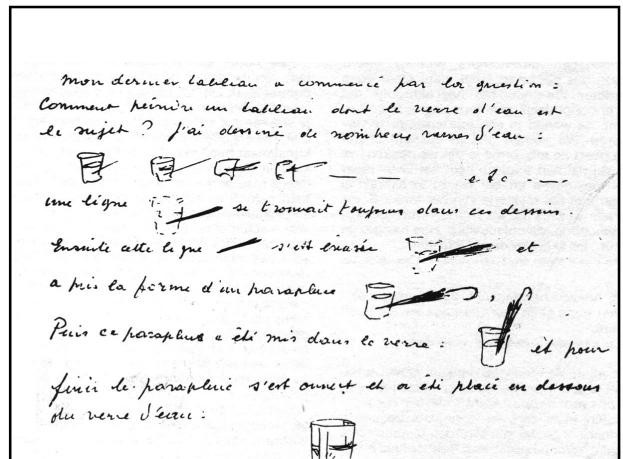 Mon dernier tableau a commencé par la question :
Comment peindre un tableau dont le verre d'eau est
le sujet ? J'ai dessiné de nombreux verres d'eau :
etc - - -
une ligne se trouvait toujours dans ces dessins.
Ensuite cette ligne s'est évasée et
a pris la forme d'un parapluie ,
Puis ce parapluie a été mis dans le verre : et pour
finir le parapluie s'est ouvert et a été placé en dessous
du verre d'eau :